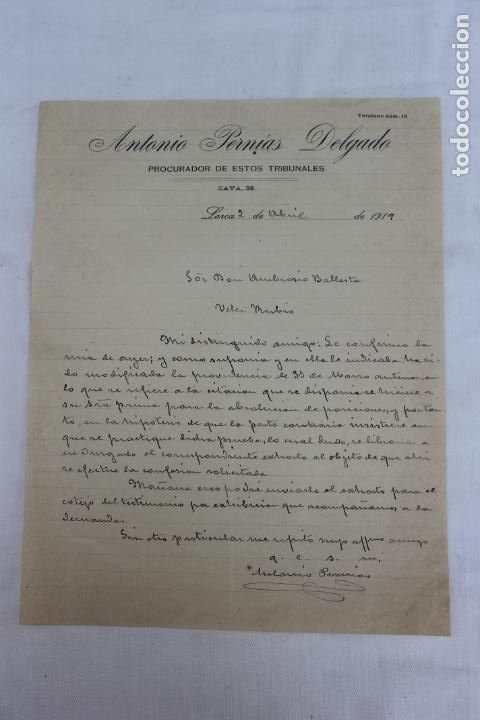 Teléfono núm. 13
Antonio Pernías Delgado
PROCURADOR DE ESTOS TRIBUNALES
CAVA, 38.
Lorca 2 de Abril de 1919
Sor Don Ambrosio Ballesta
Velez Rubio
Mi distinguido amigo: Le confirmo la
mia de ayer; y como suponia y en ella le indicaba ha si-
do modificada la providencia de 33 de Marzo anterior, en
lo que se refiere a la citacion que se disponia se hiciese a
su Sra prima para la absolucion de posiciones, y por tan-
to, en la hipotesis de que la parte contraria insistiere en
que se practique dicha prueba, lo cual dudo, se libraria a
ese Juzgado el correspondiente exhorto al objeto de que ahi
se efectue la confesion solicitada.
Mañana creo podré enviarle el exhorto para el
cotejo del testimonio por exhibicion que acompañamos a la
demanda.
Sin otro particular me repito suyo affmo amigo
q. e. s. m.
Antonio Pernias
todocoleccion